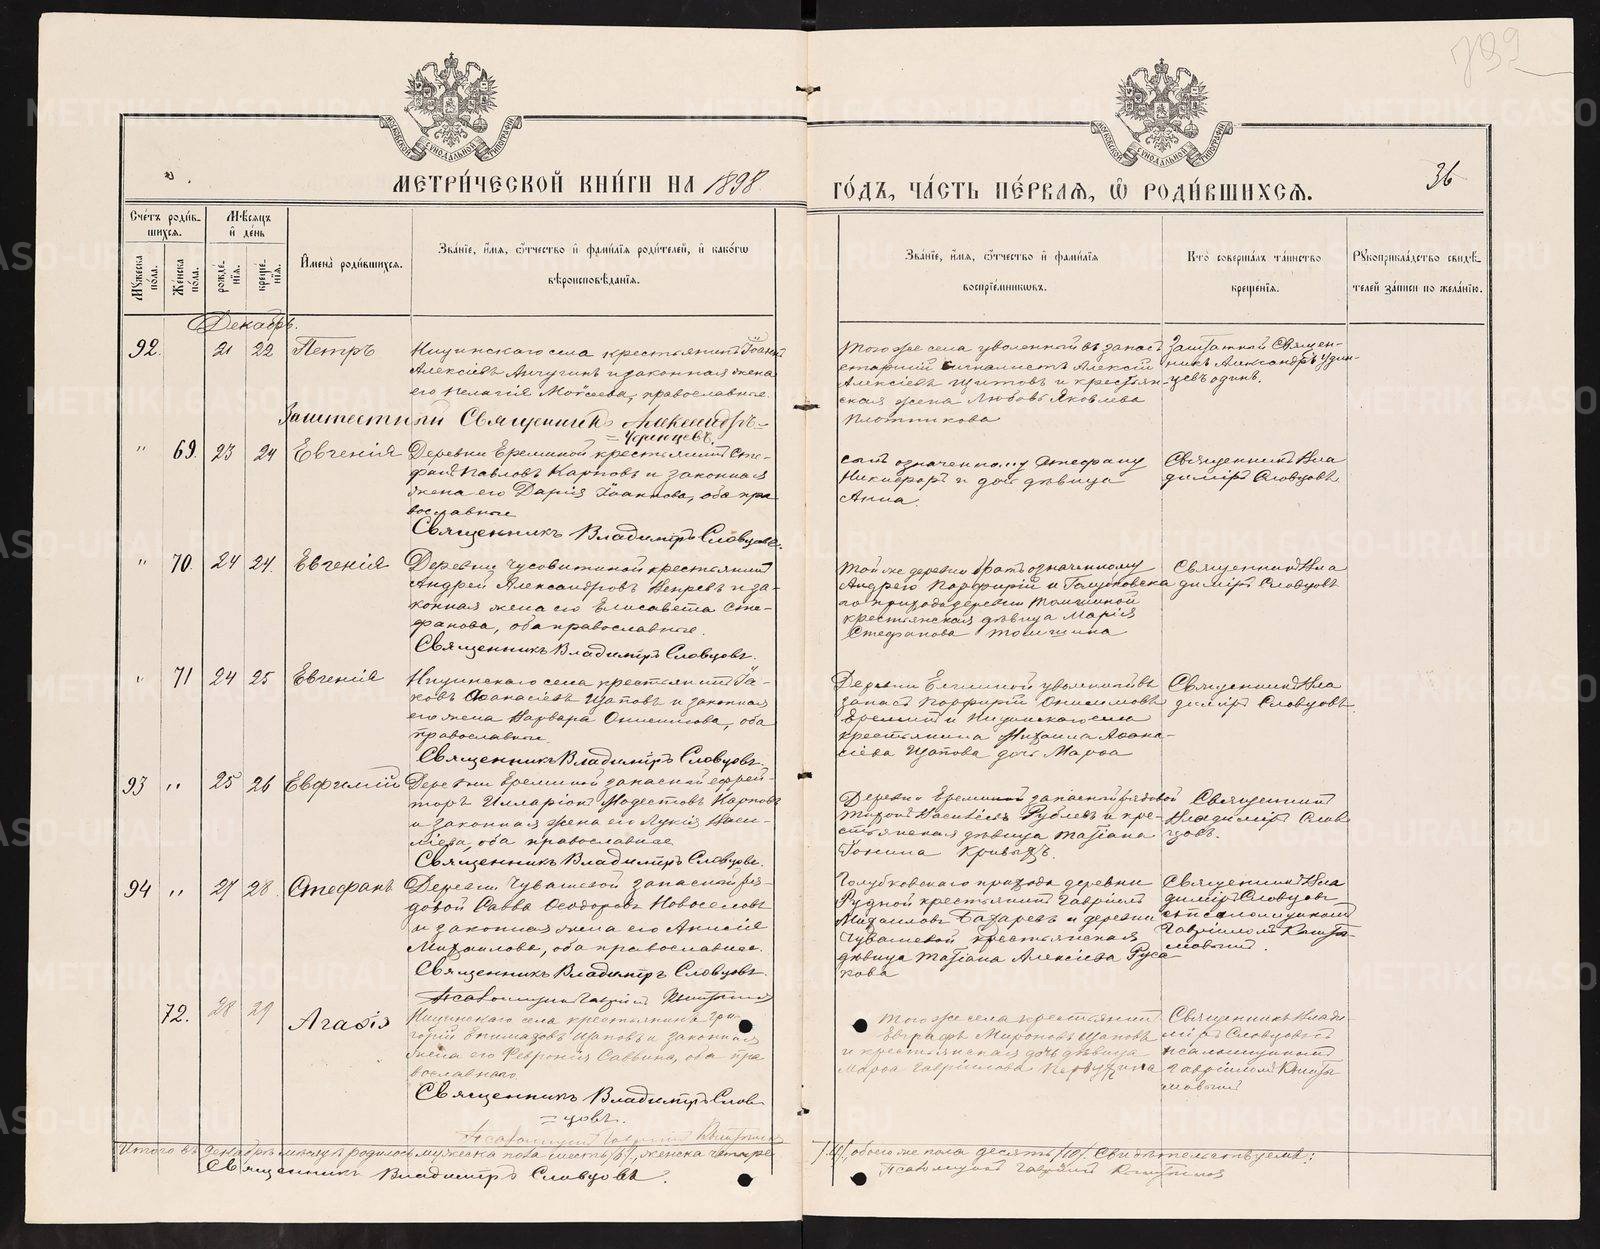 789
МЕТРИ́ЧЕСКОЙ КНИ́ГИ НА 1898
ГО́ДЪ, ЧА́СТЬ ПЕ́РВАЯ, Ѽ РОДИ́ВШИХСЯ.
36
Сче́тъ роди́в-
шихся.
Мѣ́сяцъ
и де́нь
Мꙋ́жеска
по́ла.
Же́нска
по́ла.
рожде́-
нїя.
креще́-
нїя.
И҆мена̀ роди́вшихся.
Зва́нїе, и҆́мя, ѻ҆́тчество и҆ фами́лїя роди́телей, и҆ како́гѡ
вѣроисповѣ́данїя.
Зва́нїе, и҆́мя, ѻ҆́тчество и҆ фами́лїя
воспрїе́мниковъ.
Кто̀ соверша́лъ та́инство
креще́нїя.
Рꙋкоприкла́дство свидѣ́-
телей за́писи по жела́нїю.
Декабрь.
92.
21
22
Петръ
Ницинскаго села крестьянинъ Іоаннъ
Алексіевъ Анчугинъ и законная жена
его Пелагія Моѵсеева, православные.
Священникъ Александръ
Того же села уволенный въ запасъ
старшій сигналистъ Алексій
Алексіевъ Щитовъ и крестьян-
ская жена Любовь Яковлева
Плотникова
Заштатный Священ-
никъ Александръ Удин-
цевъ одинъ.
"
69.
23
24
Евгенія
Деревни Ереминой крестьянинъ Сте-
фанъ Павловъ Карповъ и законная
жена его Дарія Іоаннова, оба пра
вославные
Священникъ Владиміръ Словцовъ.
сынъ означенному Стефану
Никифоръ и дочь дѣвица
Анна.
Священникъ Вла
диміръ Словцовъ
"
70.
24
24.
Евгенія
Деревни Чусовитиной крестьянинъ
Андрей Александровъ Вепревъ и за-
конная жена его Елисавета Сте-
фанова, оба православные.
Священникъ Владиміръ Словцовъ.
Той же деревни братъ означенному
Андрею Порфирій и Голубковска
го прихода деревни Томшиной
крестьянская дѣвица Марія
Стефанова Томшина
Священникъ Вла
диміръ Словцовъ
"
71
24
25
Евгенія
Ницинскаго села крестьянинъ Іа-
ковъ Аѳанасіевъ Щаповъ и законная
его жена Варвара Онисимова, оба
православные
Священникъ Владиміръ Словцовъ.
запасъ Порфирій Онисимовъ
Ереминъ и Ницинскаго села
крестьянина Михаила Аѳана-
сіева Щапова дочь Марѳа
Священникъ Вла
диміръ Словцовъ.
93
"
25
26
Евфимій
Деревни Ереминой запасной ефрей-
торъ Илларіонъ Модестовъ Карповъ
и законная жена его Лукія Васи-
ліева, оба православные
Священникъ Владиміръ Словцовъ.
Деревни Ереминой запасной рядовой
стьянская дѣвица Татіана
Священникъ
Владиміръ Слов
цовъ.
94
"
27
28
Стефанъ
Деревни Чувашевой запасной ря-
довой Савва Ѳеодоровъ Новоселовъ
и законная жена его Анисія
Михаилова, оба православные.
Священникъ Владиміръ Словцовъ.
Голубковскаго прихода деревни
Рудной крестьянинъ Гавріилъ
Михаиловъ Бахаревъ и деревни
Чувашевой крестьянская
дѣвица Татіана Алексіева Руса
кова
Священникъ Вла
диміръ Словцовъ
съ псаломщикомъ
72.
28
29
Агаѳія
Ницинскаго села крестьянинъ Гри-
жена его Феѵронія Саввина, оба пра
вославные.
Священникъ Владиміръ Слов
=цовъ.
Того же села крестьянинъ
Евграфъ Мироновъ Щаповъ
и крестьянская дочь дѣвица
Марѳа Гавріилова
Священникъ Влади-
міръ Словцовъ съ
псаломщикомъ
Итого въ декабрѣ мѣсяцѣ родилось мужеска пола шесть /6/, женска четыре
/4/, обоего же пола десять /10/. Свидѣтельствуемъ:
Священникъ Владиміръ Словцовъ.